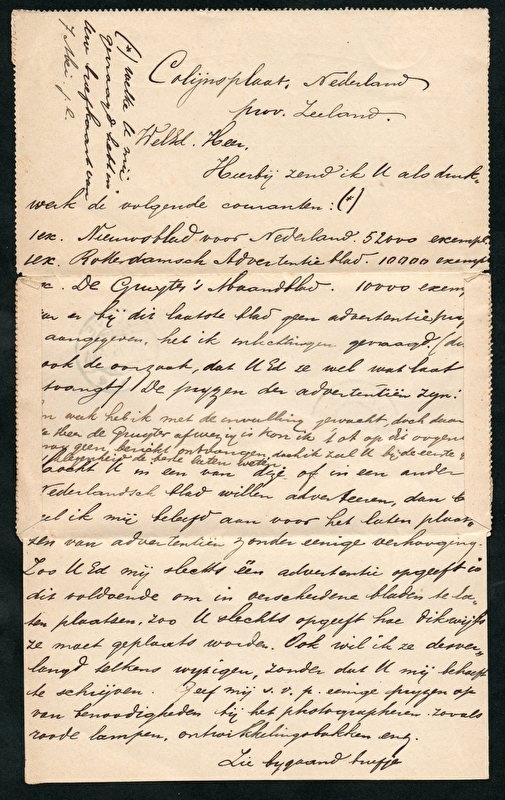 (*) welke U mij
gevraagd hebt in
uw briefkaart van
7 Mei j.l.
Colijnsplaat, Nederland
prov. Zeeland.
WelEd. Heer,
Hierbij zend ik U als druk-
werk de volgende couranten: (*)
1ex. Nieuwsblad voor Nederland. 52000 exempl.
1ex. Rotterdamsch Advertentieblad. 10000 exemp
De Gruyter's Maandblad. 10000 exem
er bij dit laatste blad geen advertentie
aangegeven, heb ik inlichtingen gevraagd. (
ook de oorzaak, dat UEd ze wel wat laat
De prijzen der advertentiën zijn:
week heb ik met de invulling gewacht, doch daar
de Heer de Gruyter afwezig is kon ik tot op dit oogen
geen bericht ontvangen, doch ik zal U bij de eerste
laten weten.
Mocht U in een van deze of in een ander
Nederlandsch blad willen adverteeren, dan
ik mij beleefd aan voor het laten plaat-
sen van advertentiën zonder eenige verhooging.
Zoo UEd mij slechts één advertentie opgeeft is
dit voldoende om in verscheidene bladen te la-
ten plaatsen, zoo U slechts opgeeft hoe dikwijls
ze moet geplaatst worden. Ook wil ik ze desver-
langd telkens wijzigen, zonder dat U mij behoeft
te schrijven. Geef mij s.v.p. eenige prijzen op
van benoodigheden bij het photographeren zooals
roode lampen, ontwikkelingsbakken enz.
Zie bijgaand briefje